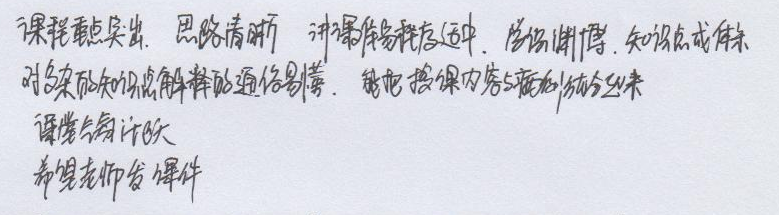 课程重点突出. 思路清晰 讲课难易程度适中. 学识渊博. 知识点成体系
对复杂的知识点解释的通俗易懂. 能把授课内容与病例结合起来
课堂气氛
希望老师发课件